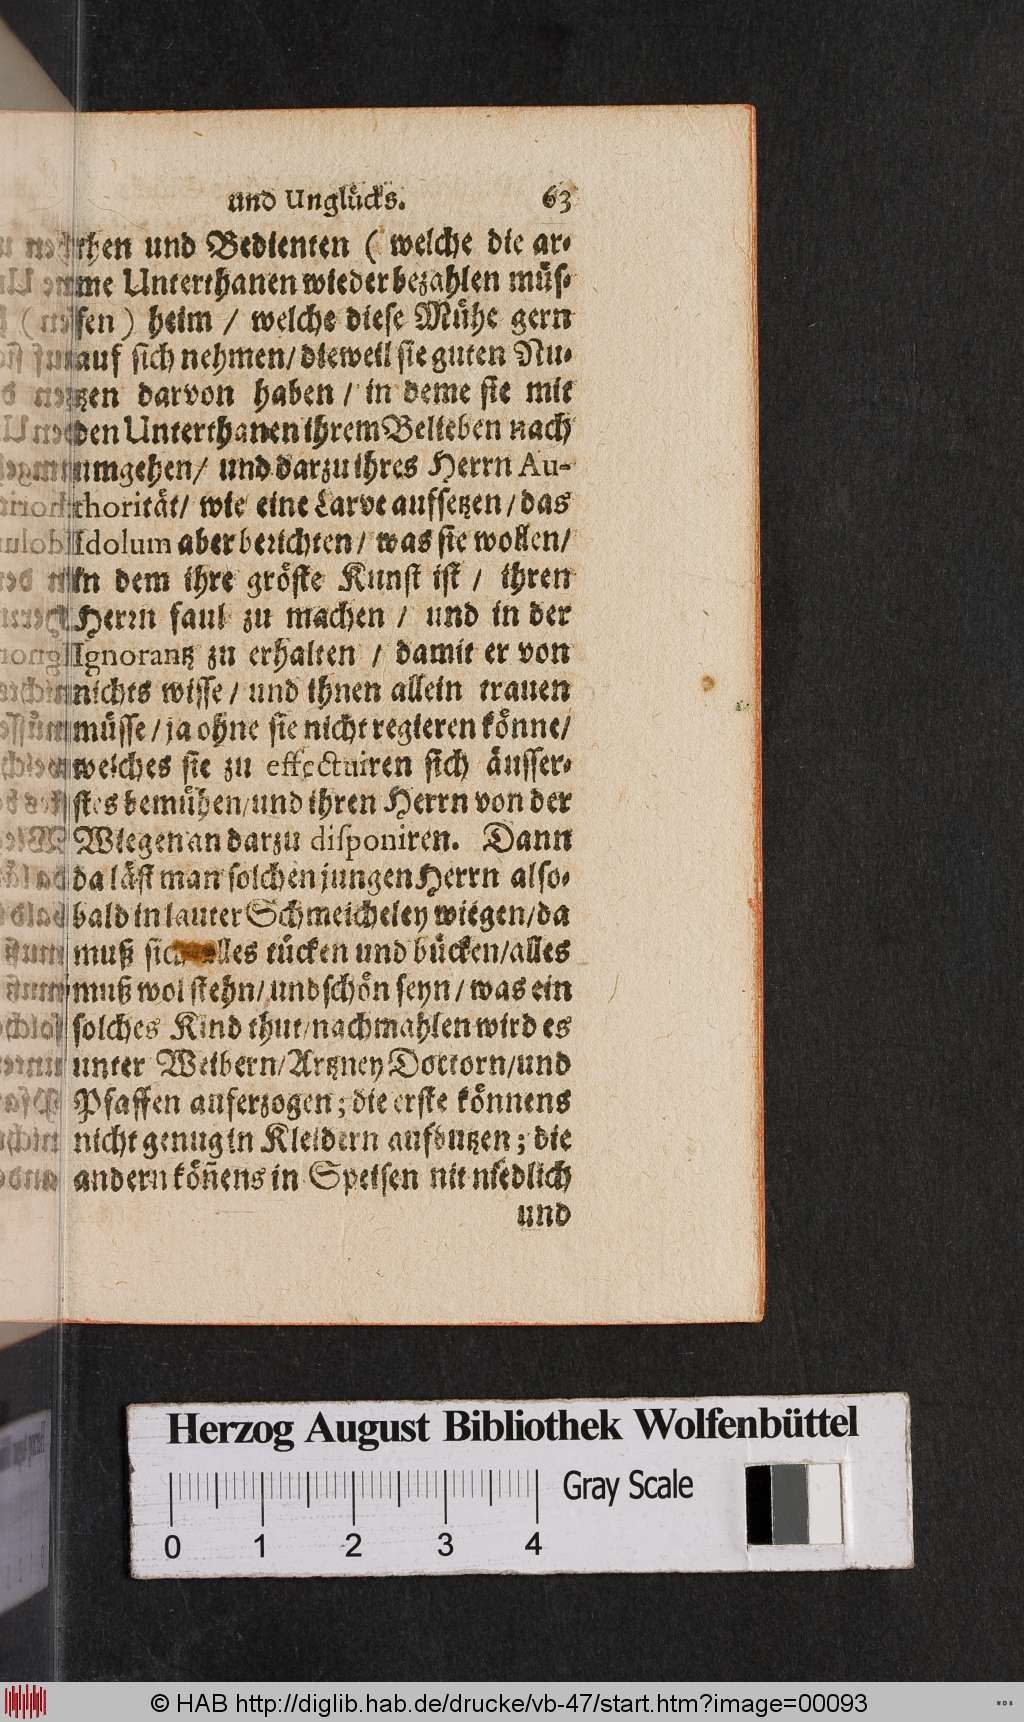 und Unglücks. 63
then und Bedienten ( welche die ar-
me Unterthanen wieder bezahlen müs-
sen ) heim / welche diese Mühe gern
auf sich nehmen / dieweil sie guten Nu-
tzen darvon haben / in deme sie mit
den Unterthanen ihrem Belieben nach
umgehen / und darzu ihres Herrn Au-
thorität / wie eine Larve aufsetzen / das
Idolum aber berichten / was sie wollen /
in dem ihre gröste Kunst ist / ihren
Herrn faul zu machen / und in der
Ignorantz zu erhalten / damit er von
nichts wisse / und ihnen allein trauen
müsse / ja ohne sie nicht regieren könne /
welches sie zu effectuiren sich äusser-
stes bemühen / und ihren Herrn von der
Wiegen an darzu disponiren. Dann
da läst man solchen jungen Herrn also-
bald in lauter Schmeicheley wiegen / da
muß sich alles tücken und bücken / alles
muß wol stehn / und schön seyn / was ein
solches Kind thut / nachmahlen wird es
unter Weibern / Artzney Doctorn / und
Pfaffen auferzogen ; die erste können's
nicht genug in Kleidern aufbutzen ; die
andern köñens in Speisen nit niedlich
und
Herzog August Bibliothek Wolfenbüttel
Gray Scale
0 1 2 3 4
© HAB http://diglib.hab.de/drucke/vb-47/start.htm?image=00093